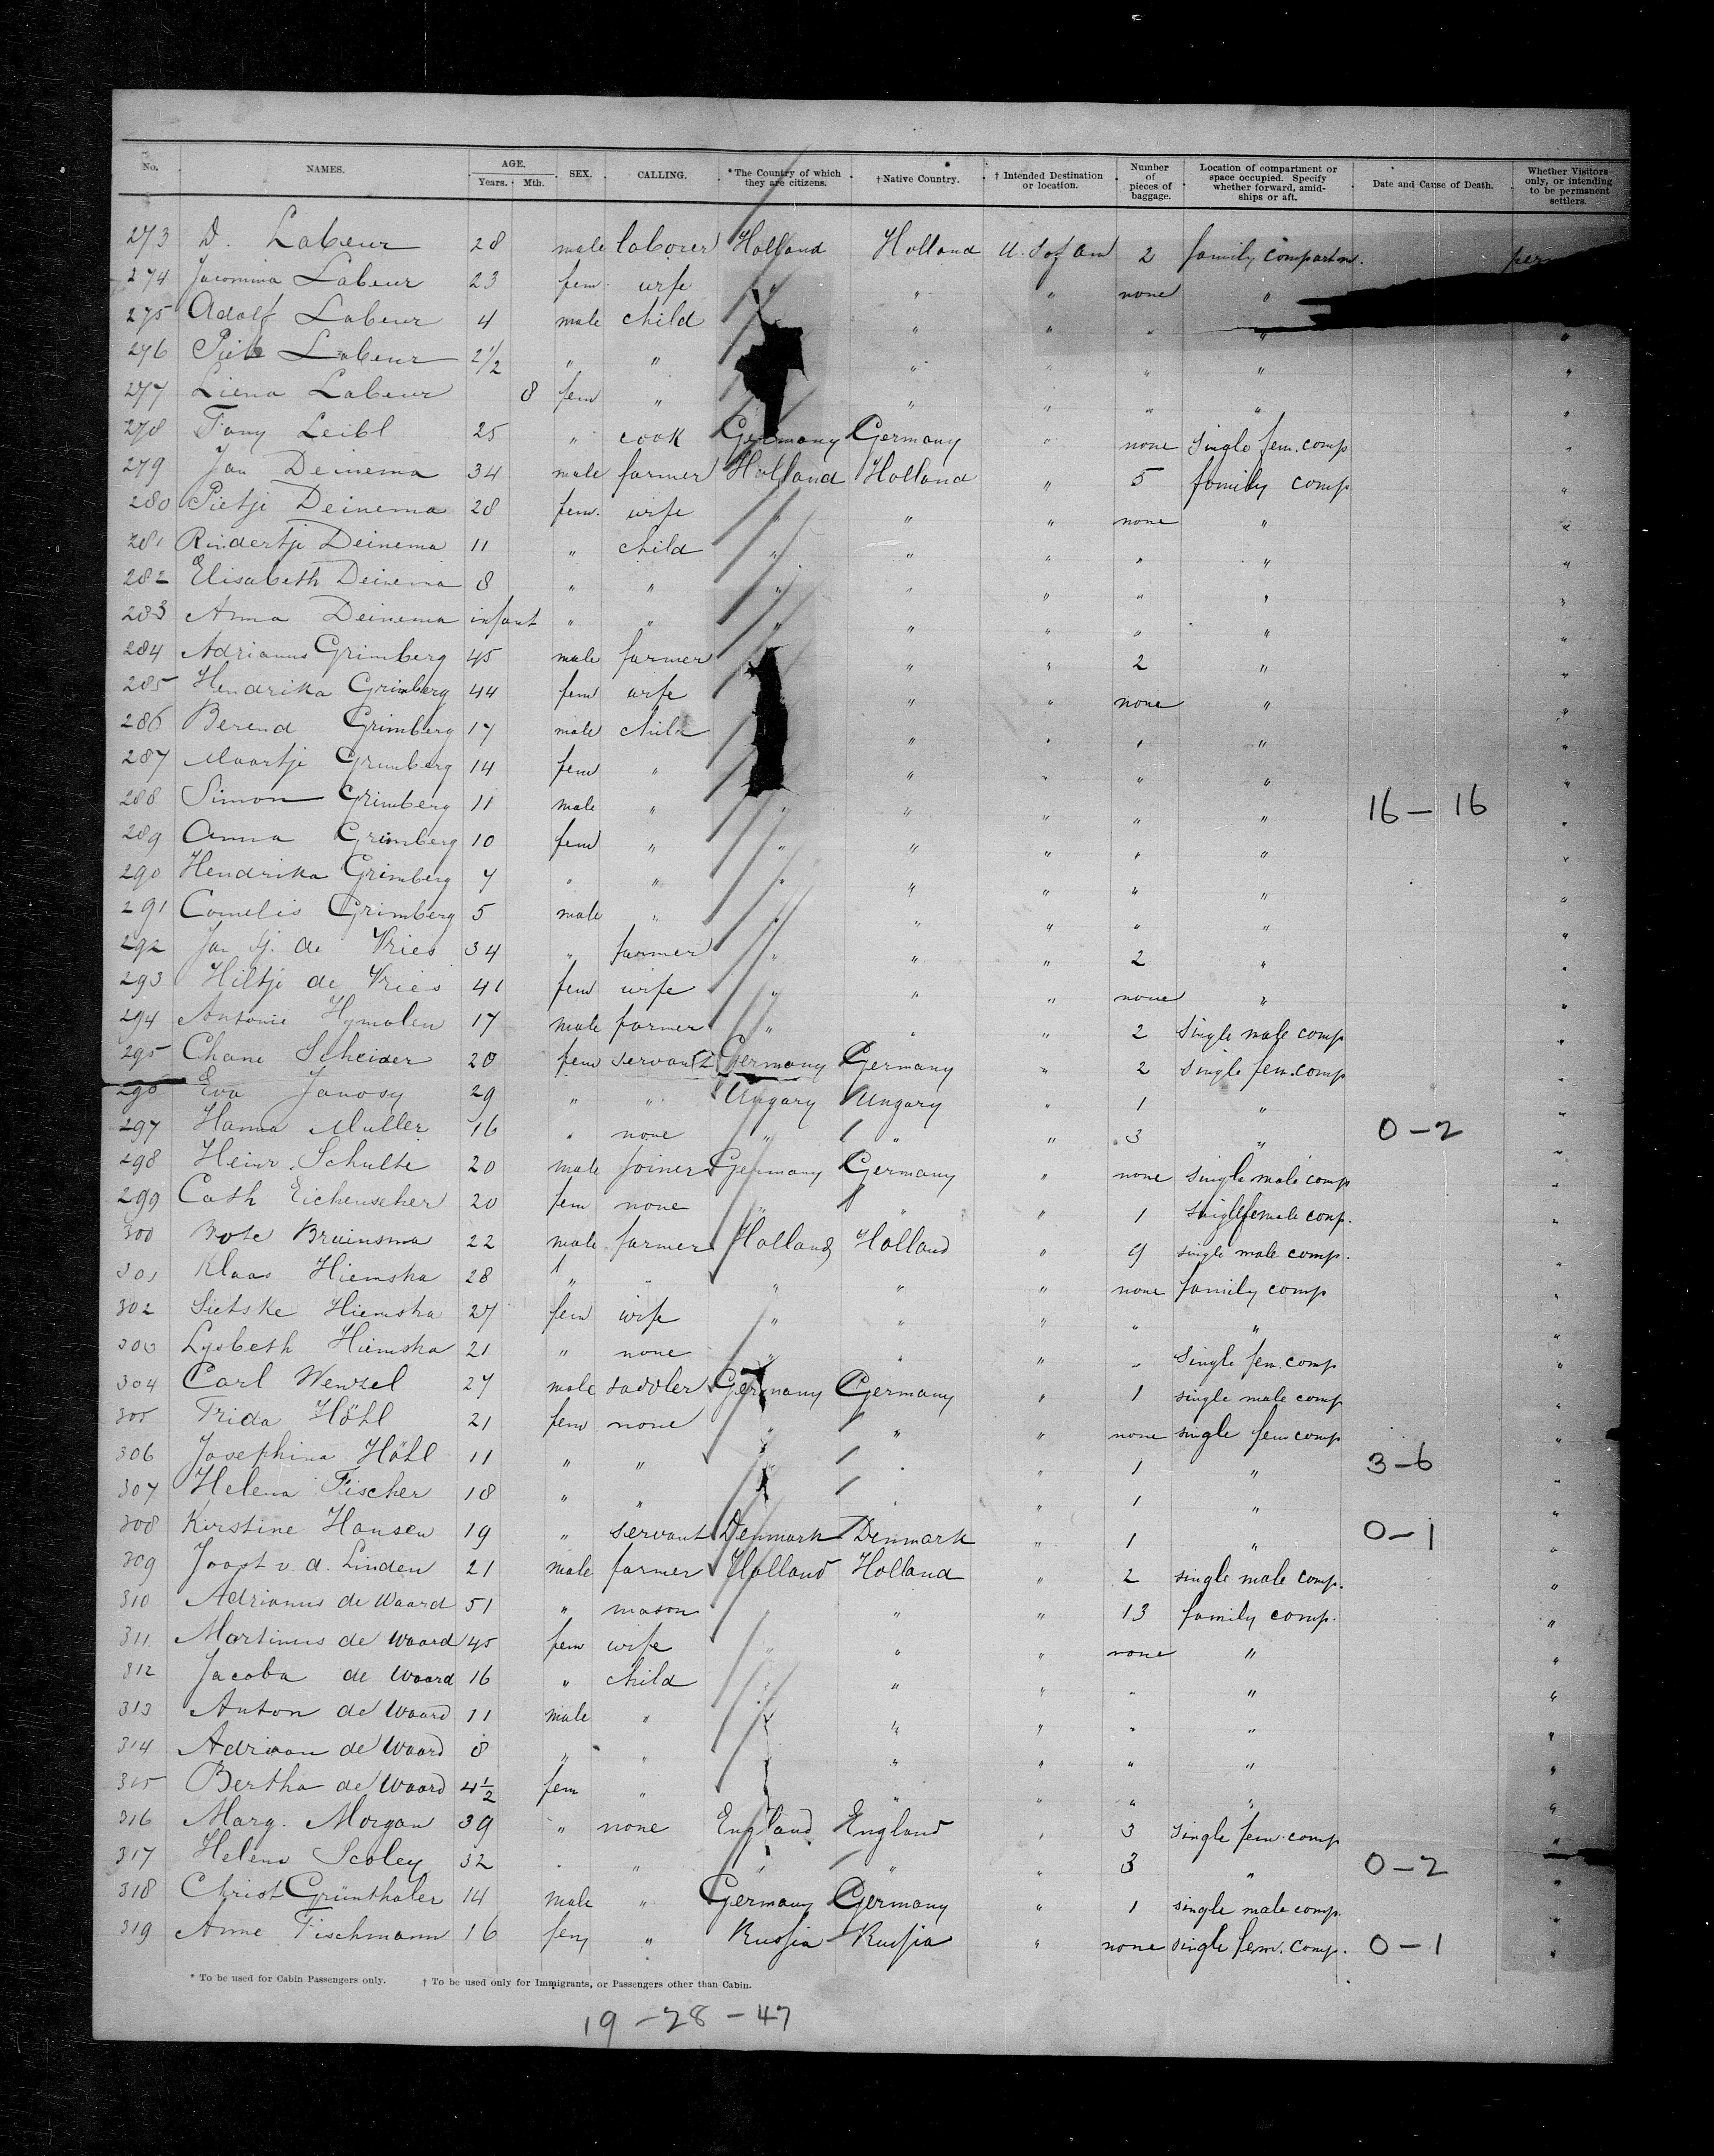 No. NAMES. AGE. Years. Mth. SEX. CALLING. *The Country of which they are citizens. †Native Country. † Intended Destination or location. Number of pieces of baggage. Location of compartment or space occupied. Specify whether forward, amidships or aft. Date and Cause of Death. Whether Visitors only, or intending to be permanent settlers.
273 D. Labeur 28 male laborer Holland Holland U. S of Am 2 family compartm.
274 Jacomina Labeur 23 fem. wife " " " none "
275 Adolf Labeur 4 male child " " " " "
276 Piet Labeur 2 1/2 " " " " " " "
277 Liena Labeur 8 fem " " " " " "
278 Fany Leibl 25 " cook Germany Germany " none single fem. comp "
279 Jan Deinema 34 male farmer Holland Holland " 5 family comp "
280 Pietje Deinema 28 fem. wife " " " none " "
281 Rindertje Deinema 11 " child " " " " " "
282 Elisabeth Deinema 8 " " " " " " " "
283 Anna Deinema infant " " " " " " " "
284 Adrianus Grimberg 45 male farmer " " 2 " "
285 Hendrika Grimberg 44 fem wife " " " none " "
286 Berend Grimberg 17 male child " " " " "
287 Maartje Grimberg 14 fem " " " " " "
288 Simon Grimberg 11 male " " " " " " 16 - 16 "
289 Anna Grimberg 10 fem " " " " " " "
290 Hendrika Grimberg 7 " " " " " " " "
291 Cornelis Grimberg 5 male " " " " " " "
292 Jan Tj. de Vries 34 " farmer " " " 2 " "
293 Hiltje de Vries 41 fem wife " " " none " "
294 Antonie Hymalen 17 male farmer " " " 2 single male comp "
295 Chane Scheider 20 fem servant Germany Germany " 2 single fem. comp "
296 Eva Janosy 29 " " Ungary Ungary " 1 " "
297 Hanna Muller 16 " none " " " 3 " 0-2 "
298 Heinr. Schulte 20 male joiner Germany Germany " none single male comp "
299 Cath Eichenseher 20 fem none " " " 1 single female comp. "
300 Bote Bruinsma 22 male farmer Holland Holland " 9 single male comp. "
301 Klaas Hiemstra 28 " " " " " none family comp "
302 Sietske Hiemstra 27 fem wife " " " " " "
303 Lysbeth Hiemstra 21 " none " " " " single fem. comp "
304 Carl Wenzel 27 male saddler Germany Germany " 1 single male comp "
305 Frida Höhl 21 fem none " " " none single fem comp "
306 Josephina Höhl 11 " " " " " 1 " 3-6 "
307 Helena Fischer 18 " " " " 1 " "
308 Kirstine Hansen 19 " servant Denmark Denmark " 1 " 0-1 "
309 Joost v. d. Linden 21 male farmer Holland Holland " 2 single male comp. "
310 Adrianus de Waard 51 " mason " " 13 family comp. "
311 Martinus de Waard 45 fem wife " " " none " "
312 Jacoba de Waard 16 " child " " " " " "
313 Anton de Waard 11 male " " " " " " "
314 Adriaan de Waard 8 " " " " " " "
315 Bertha de Waard 4 1/2 fem " " " " " "
316 Marg. Morgan 39 " none England England " 3 single fem. comp "
317 Helene Scoley 32 " " " " " 3 " 0-2 "
318 Christ Grünthaler 14 male " Germany Germany " 1 single male comp. "
319 Anne Fischmann 16 fem " Russia Russia " none single fem. comp. 0-1 "
* To be used for Cabin Passengers only. † To be used only for Immigrants, or Passengers other than Cabin.
19 - 28 - 47